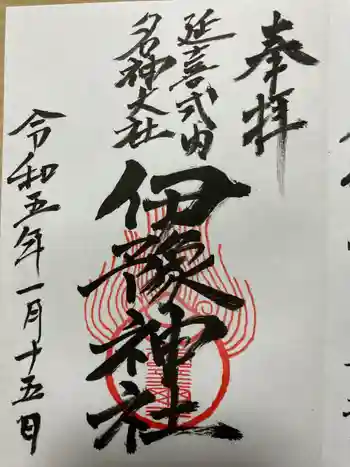 奉拝
延喜式内
名神大社
伊豫神社
令和五年一月十五日